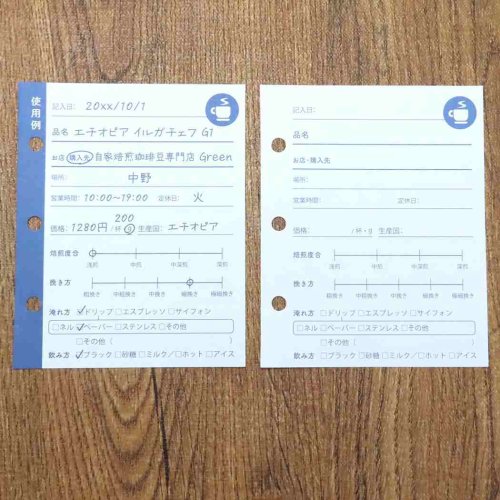 使用例
記入日: 20xx/10/1
品名 エチオピア イルガチェフ G1
お店・購入先 自家焙煎珈琲豆専門店 Green
場所: 中野
営業時間: 10:00〜19:00 定休日: 火
価格: 1280円 200 /杯・g 生産国: エチオピア
焙煎度合
浅煎 中煎 中深煎 深煎
挽き方
粗挽き 中粗挽き 中挽き 細挽き 極細挽き
淹れ方 ☑ドリップ □エスプレッソ □サイフォン
□ネル ☑ペーパー □ステンレス □その他
□その他 (
飲み方 ☑ブラック □砂糖 □ミルク／□ホット □アイス
記入日:
品名
お店・購入先
場所:
営業時間: 定休日:
価格: /杯・g 生産国:
焙煎度合
浅煎 中煎 中深煎 深煎
挽き方
粗挽き 中粗挽き 中挽き 細挽き 極細挽き
淹れ方 □ドリップ □エスプレッソ □サイフォン
□ネル □ペーパー □ステンレス □その他
□その他 (
飲み方 □ブラック □砂糖 □ミルク／□ホット □アイス